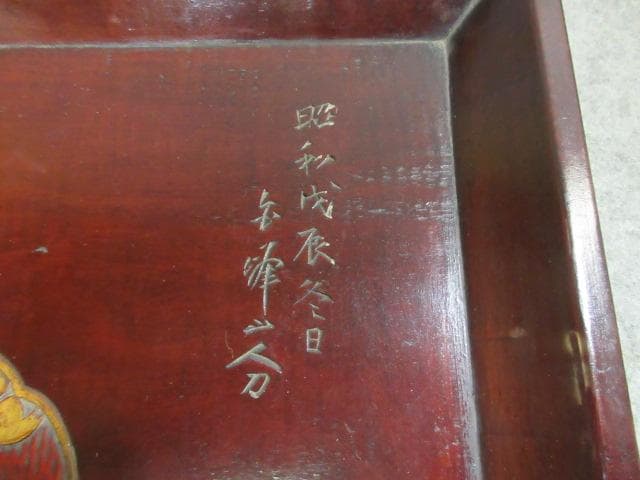 昭和戊辰冬日
峰山人刀